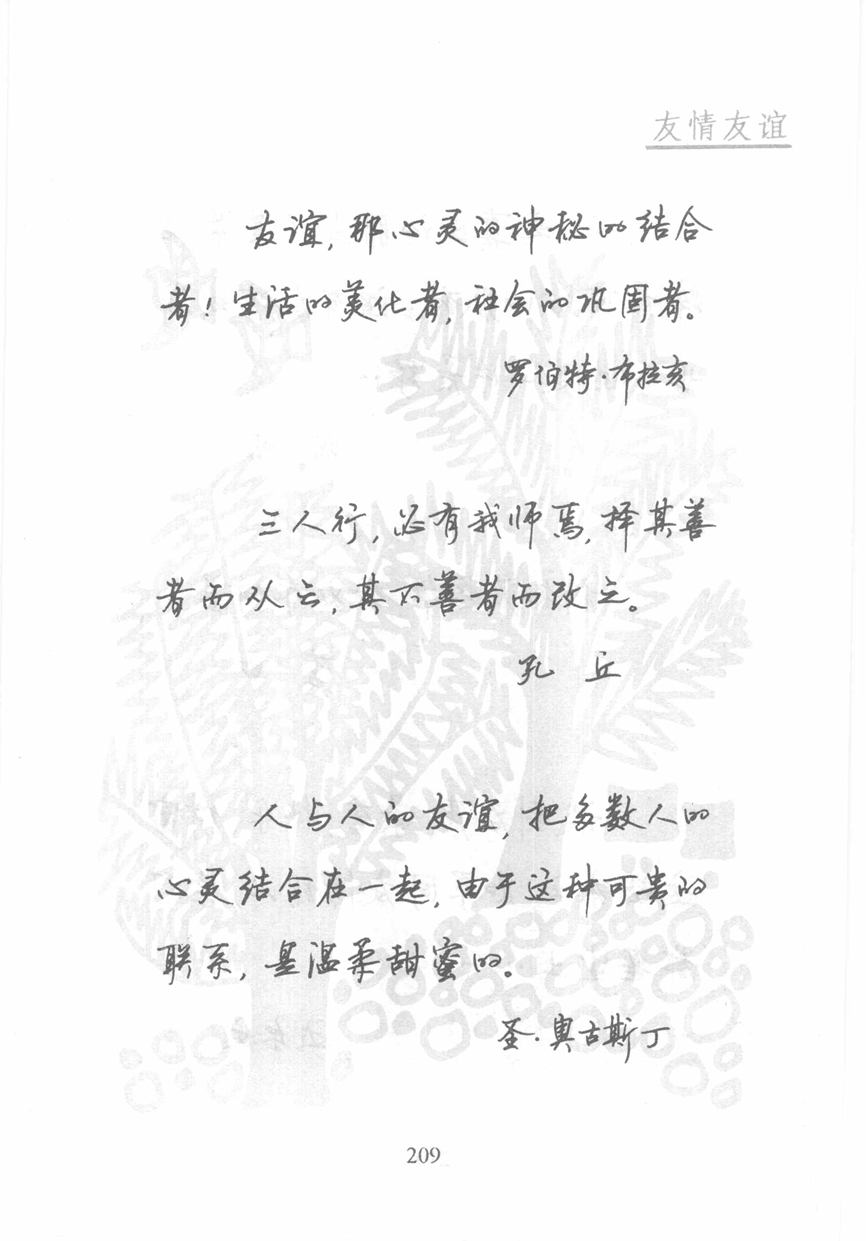 友情友谊
友谊，那心灵的神秘的结合
者！生活的美化者，社会的巩固者。
罗伯特·布拉亥
三人行，必有我师焉，择其善
者而从之，其不善者而改之。
孔 丘
人与人的友谊，把多数人的
心灵结合在一起，由于这种可贵的
联系，是温柔甜蜜的。
圣·奥古斯丁
209